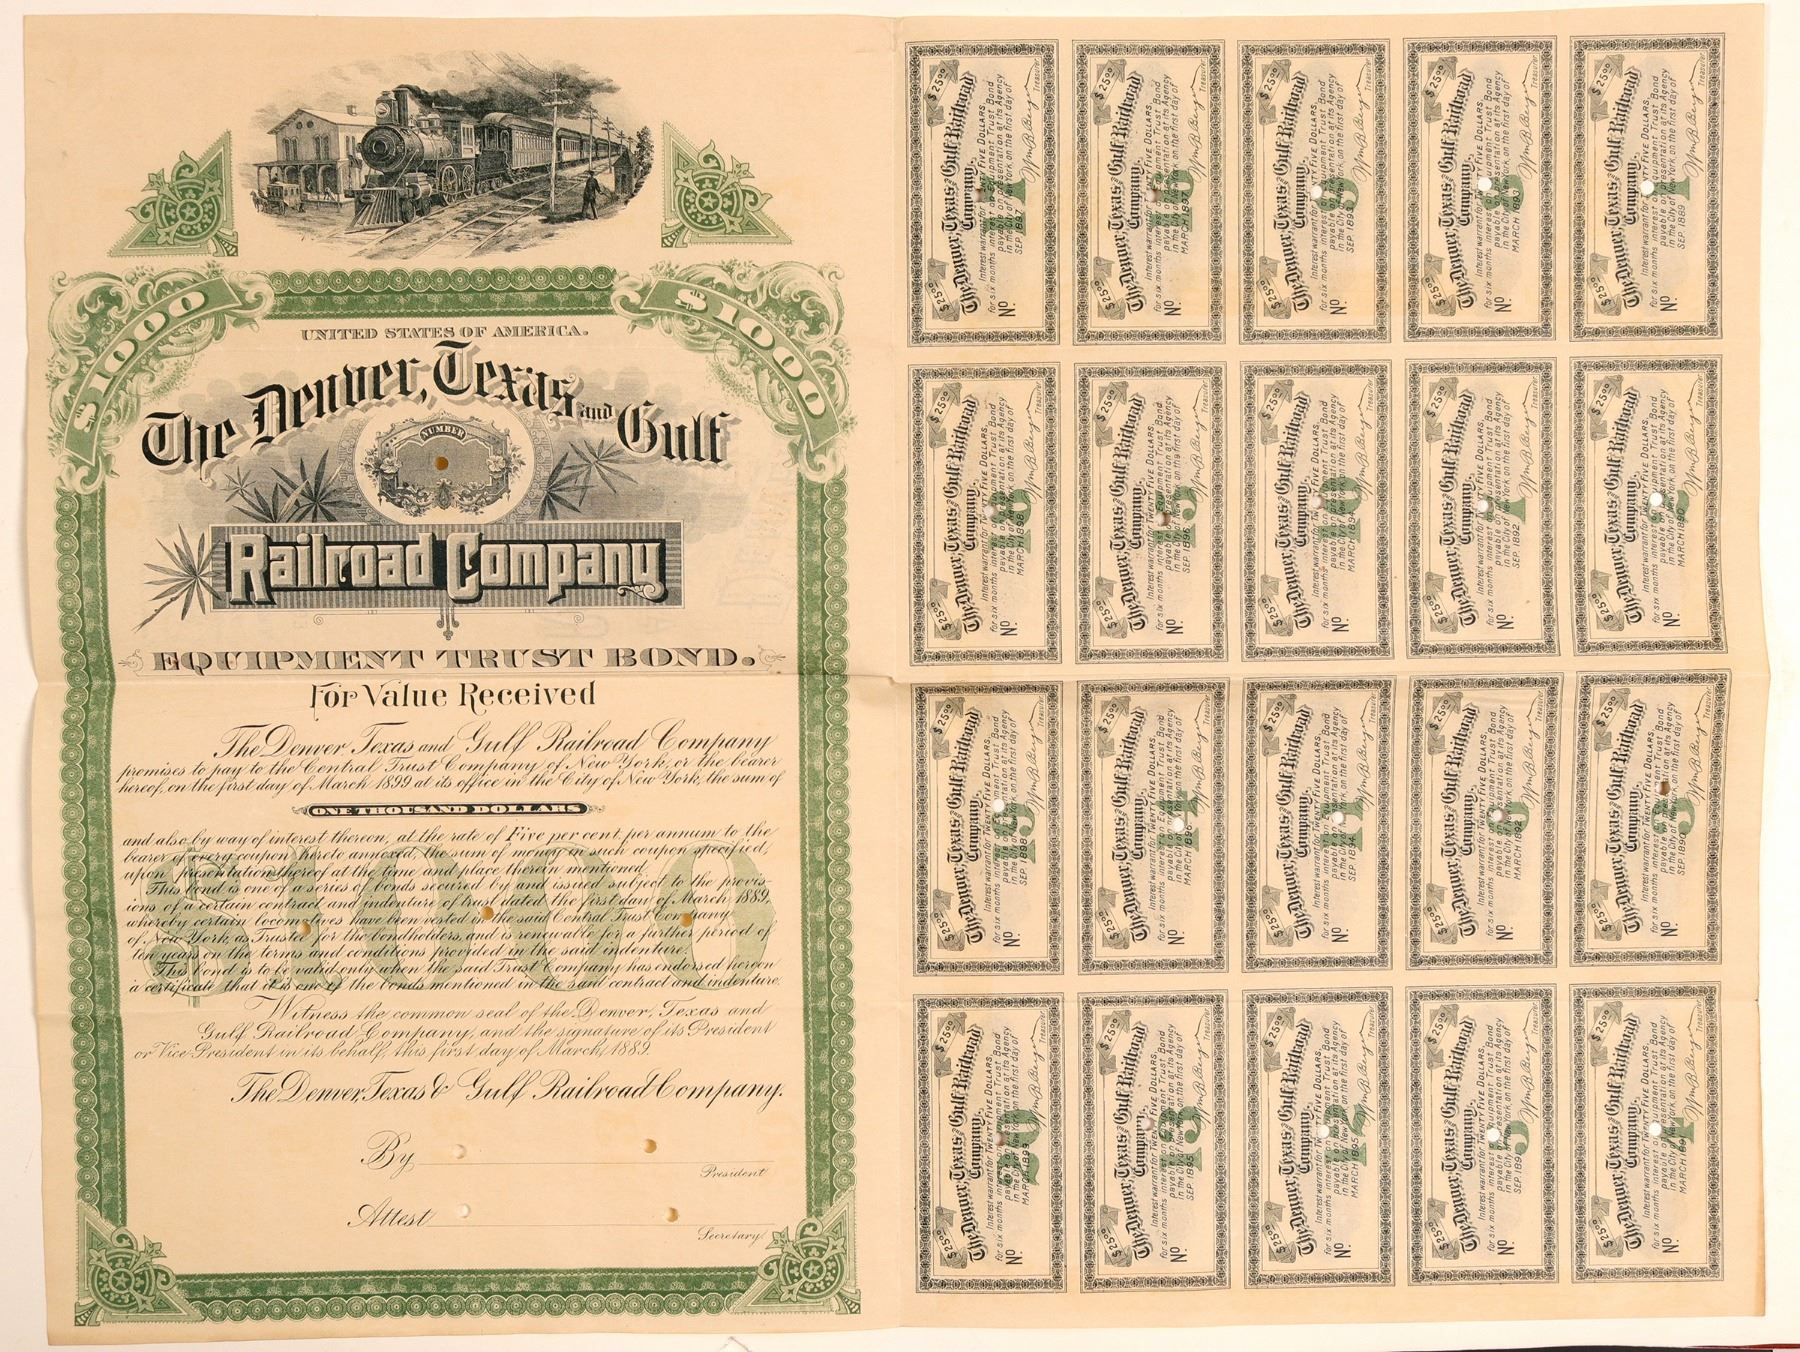 UNITED STATES OF AMERICA.
$1000
$1000
The Denver, Texas and Gulf
NUMBER
Railroad Company
EQUIPMENT TRUST BOND.
For Value Received
The Denver, Texas and Gulf Railroad Company
promises to pay to the Central Trust Company of New York, or the bearer
hereof, on the first day of March 1899 at its office in the City of New York, the sum of
ONE THOUSAND DOLLARS
and also by way of interest thereon, at the rate of Five per cent. per annum to the
bearer of every coupon hereto annexed, the sum of money in such coupon specified,
upon presentation thereof at the time and place therein mentioned.
This bond is one of a series of bonds secured by and issued subject to the provis-
ions of a certain contract and indenture of trust dated the first day of March 1889,
whereby certain locomotives have been vested in the said Central Trust Company
of New York, as Trustee for the bondholders, and is renewable for a further period of
ten years on the terms and conditions provided in the said indenture.
This bond is to be valid only when the said Trust Company has endorsed hereon
a certificate that it is one of the bonds mentioned in the said contract and indenture.
$1000
Witness the common seal of the Denver, Texas and
Gulf Railroad Company, and the signature of its President
or Vice-President in its behalf, this first day of March, 1889.
The Denver, Texas & Gulf Railroad Company.
By
President
Attest
Secretary
$25.00 $25.00
The Denver, Texas and Gulf Railroad
Company.
Interest warrant for TWENTY FIVE DOLLARS.
for six months interest on Equipment Trust Bond
payable on presentation at its Agency
in the City of New York, on the first day of
SEP. 1897.
No. Wm B. Berger Treasurer
$25.00 $25.00
The Denver, Texas and Gulf Railroad
Company.
Interest warrant for TWENTY FIVE DOLLARS.
for six months interest on Equipment Trust Bond
payable on presentation at its Agency
in the City of New York, on the first day of
MARCH
No. Wm B. Berger Treasurer
$25.00 $25.00
The Denver, Texas and Gulf Railroad
Company.
Interest warrant for TWENTY FIVE DOLLARS.
for six months interest on Equipment Trust Bond
payable on presentation at its Agency
in the City of New York, on the first day of
SEP. 1893
No. Wm B. Berger Treasurer
$25.00 $25.00
The Denver, Texas and Gulf Railroad
Company.
Interest warrant for TWENTY FIVE DOLLARS.
for six months interest on Equipment Trust Bond
payable on presentation at its Agency
in the City of New York, on the first day of
MARCH 1893
No. Wm B. Berger Treasurer
$25.00 $25.00
The Denver, Texas and Gulf Railroad
Company.
Interest warrant for TWENTY FIVE DOLLARS.
for six months interest on Equipment Trust Bond
payable on presentation at its Agency
in the City of New York, on the first day of
SEP. 1889
No. Wm B. Berger Treasurer
$25.00 $25.00
The Denver, Texas and Gulf Railroad
Company.
Interest warrant for TWENTY FIVE DOLLARS.
for six months interest on Equipment Trust Bond
payable on presentation at its Agency
in the City of New York, on the first day of
MARCH 1898
No. Wm B. Berger Treasurer
$25.00 $25.00
The Denver, Texas and Gulf Railroad
Company.
Interest warrant for TWENTY FIVE DOLLARS.
for six months interest on Equipment Trust Bond
payable on presentation at its Agency
in the City of New York, on the first day of
SEP. 1896
No. Wm B. Berger Treasurer
$25.00 $25.00
The Denver, Texas and Gulf Railroad
Company.
Interest warrant for TWENTY FIVE DOLLARS.
for six months interest on Equipment Trust Bond
payable on presentation at its Agency
in the City of New York, on the first day of
MARCH 1894
No. Wm B. Berger Treasurer
$25.00 $25.00
The Denver, Texas and Gulf Railroad
Company.
Interest warrant for TWENTY FIVE DOLLARS.
for six months interest on Equipment Trust Bond
payable on presentation at its Agency
in the City of New York, on the first day of
SEP. 1892
No. Wm B. Berger Treasurer
$25.00 $25.00
The Denver, Texas and Gulf Railroad
Company.
Interest warrant for TWENTY FIVE DOLLARS.
for six months interest on Equipment Trust Bond
payable on presentation at its Agency
in the City of New York, on the first day of
MARCH 1890
No. Wm B. Berger Treasurer
$25.00 $25.00
The Denver, Texas and Gulf Railroad
Company.
Interest warrant for TWENTY FIVE DOLLARS.
for six months interest on Equipment Trust Bond
payable on presentation at its Agency
in the City of New York, on the first day of
SEP. 1898
No. Wm B. Berger Treasurer
$25.00 $25.00
The Denver, Texas and Gulf Railroad
Company.
Interest warrant for TWENTY FIVE DOLLARS.
for six months interest on Equipment Trust Bond
payable on presentation at its Agency
in the City of New York, on the first day of
MARCH 1896
No. Wm B. Berger Treasurer
$25.00 $25.00
The Denver, Texas and Gulf Railroad
Company.
Interest warrant for TWENTY FIVE DOLLARS.
for six months interest on Equipment Trust Bond
payable on presentation at its Agency
in the City of New York, on the first day of
SEP. 1894
No. Wm B. Berger Treasurer
$25.00 $25.00
The Denver, Texas and Gulf Railroad
Company.
Interest warrant for TWENTY FIVE DOLLARS.
for six months interest on Equipment Trust Bond
payable on presentation at its Agency
in the City of New York, on the first day of
MARCH 1892
No. Wm B. Berger Treasurer
$25.00 $25.00
The Denver, Texas and Gulf Railroad
Company.
Interest warrant for TWENTY FIVE DOLLARS.
for six months interest on Equipment Trust Bond
payable on presentation at its Agency
in the City of New York, on the first day of
SEP. 1890
No. Wm B. Berger Treasurer
$25.00 $25.00
The Denver, Texas and Gulf Railroad
Company.
Interest warrant for TWENTY FIVE DOLLARS.
for six months interest on Equipment Trust Bond
payable on presentation at its Agency
in the City of New York, on the first day of
MARCH 1899
No. Wm B. Berger Treasurer
$25.00 $25.00
The Denver, Texas and Gulf Railroad
Company.
Interest warrant for TWENTY FIVE DOLLARS.
for six months interest on Equipment Trust Bond
payable on presentation at its Agency
in the City of New York, on the first day of
SEP. 1895
No. Wm B. Berger Treasurer
$25.00 $25.00
The Denver, Texas and Gulf Railroad
Company.
Interest warrant for TWENTY FIVE DOLLARS.
for six months interest on Equipment Trust Bond
payable on presentation at its Agency
in the City of New York, on the first day of
MARCH 1895
No. Wm B. Berger Treasurer
$25.00 $25.00
The Denver, Texas and Gulf Railroad
Company.
Interest warrant for TWENTY FIVE DOLLARS.
for six months interest on Equipment Trust Bond
payable on presentation at its Agency
in the City of New York, on the first day of
SEP. 1891
No. Wm B. Berger Treasurer
$25.00 $25.00
The Denver, Texas and Gulf Railroad
Company.
Interest warrant for TWENTY FIVE DOLLARS.
for six months interest on Equipment Trust Bond
payable on presentation at its Agency
in the City of New York, on the first day of
MARCH 1891
No. Wm B. Berger Treasurer